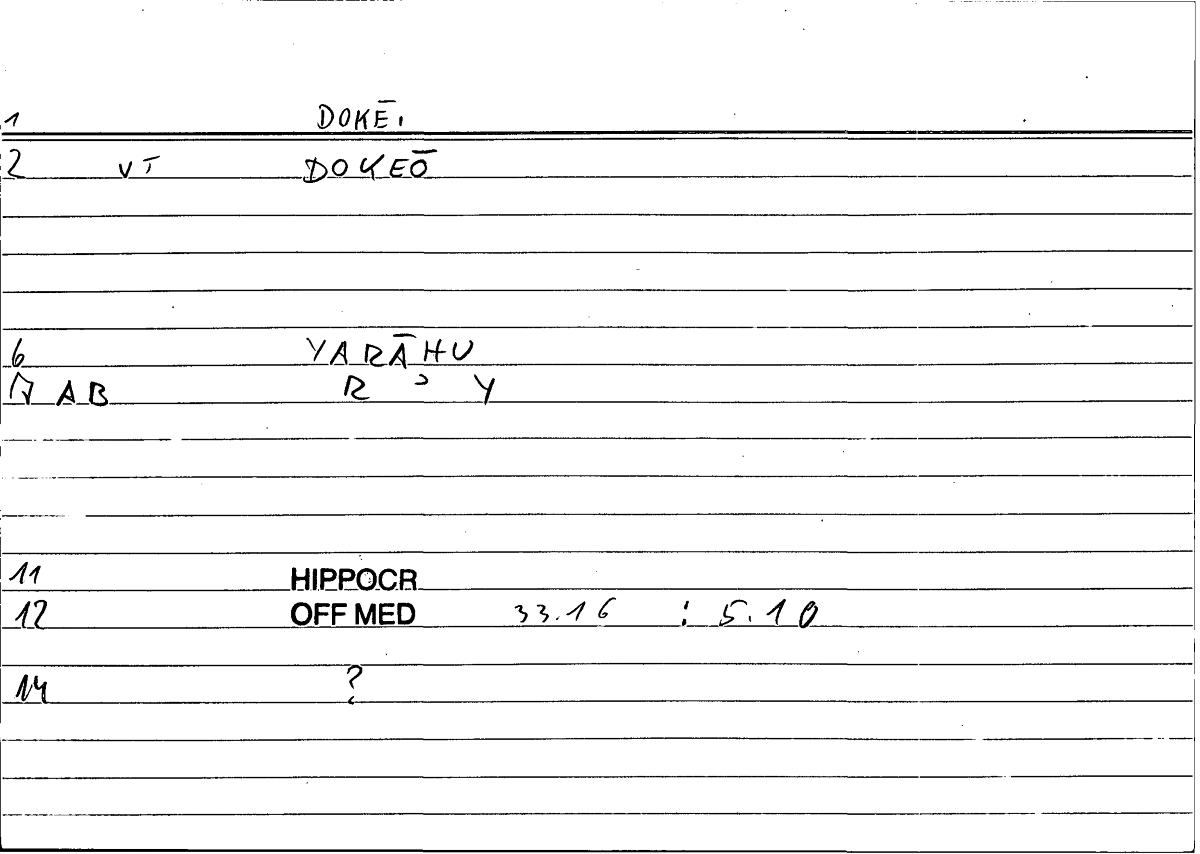 1 DOKĒI
2 VT DOKEŌ
6 YARĀHU
7 AB R ʾ Y
11 HIPPOCR
12 OFF MED 33.16 : 5.10
14 ?